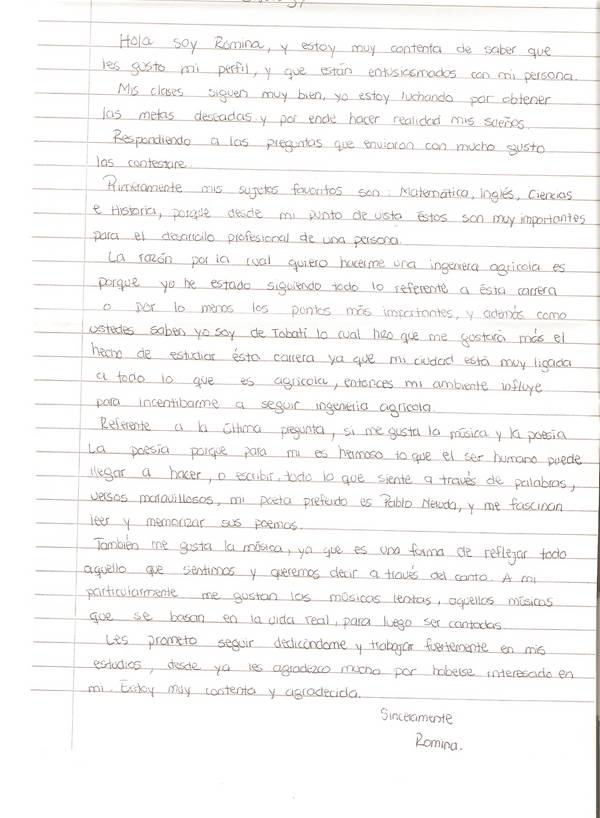 Hola soy Romina, y estoy muy contenta de saber que
les gusto mi perfil, y que están entusiasmados con mi persona.
Mis clases siguen muy bien, yo estoy luchando por obtener
las metas deseadas y por ende hacer realidad mis sueños.
Respondiendo a las preguntas que enviaron con mucho gusto
las contestare.
Primeramente mis sujetos favoritos son: Matemática, inglés, Ciencias
e Historia, porque desde mi punto de vista éstos son muy importantes
para el desarrollo profesional de una persona.
La razón por la cual quiero hacerme una ingeniera agrícola es
porque yo he estado siguiendo todo lo referente a ésta carrera
o por lo menos los puntos más importantes, y además como
ustedes saben yo soy de Tobatí lo cual hizo que me gustará más el
hecho de estudiar ésta carrera ya que mi ciudad está muy ligada
a todo lo que es agrícola, entonces mi ambiente influye
para incentibarme a seguir ingeniería agrícola.
Referente a la última pregunta, si me gusta la música y la poesía
La poesía porque para mi es hermoso lo que el ser humano puede
llegar a hacer, o escribir, todo lo que siente a través de palabras,
versos maravillosos, mi poeta preferido es Pablo Neruda, y me fascinan
leer y memorizar sus poemas.
También me gusta la música, ya que es una forma de reflejar todo
aquello que sentimos y queremos decir a través del canto. A mi
particularmente me gustan las músicas lentas, aquellas músicas
que se basan en la vida real, para luego ser cantadas.
Les prometo seguir dedicándome y trabajar fuertemente en mis
estudios, desde ya les agradezco mucho por haberse interesado en
mi. Estoy muy contenta y agradecida.
Sinceramente
Romina.